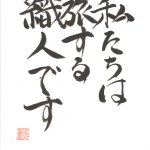 私たちは
旅する
織人です